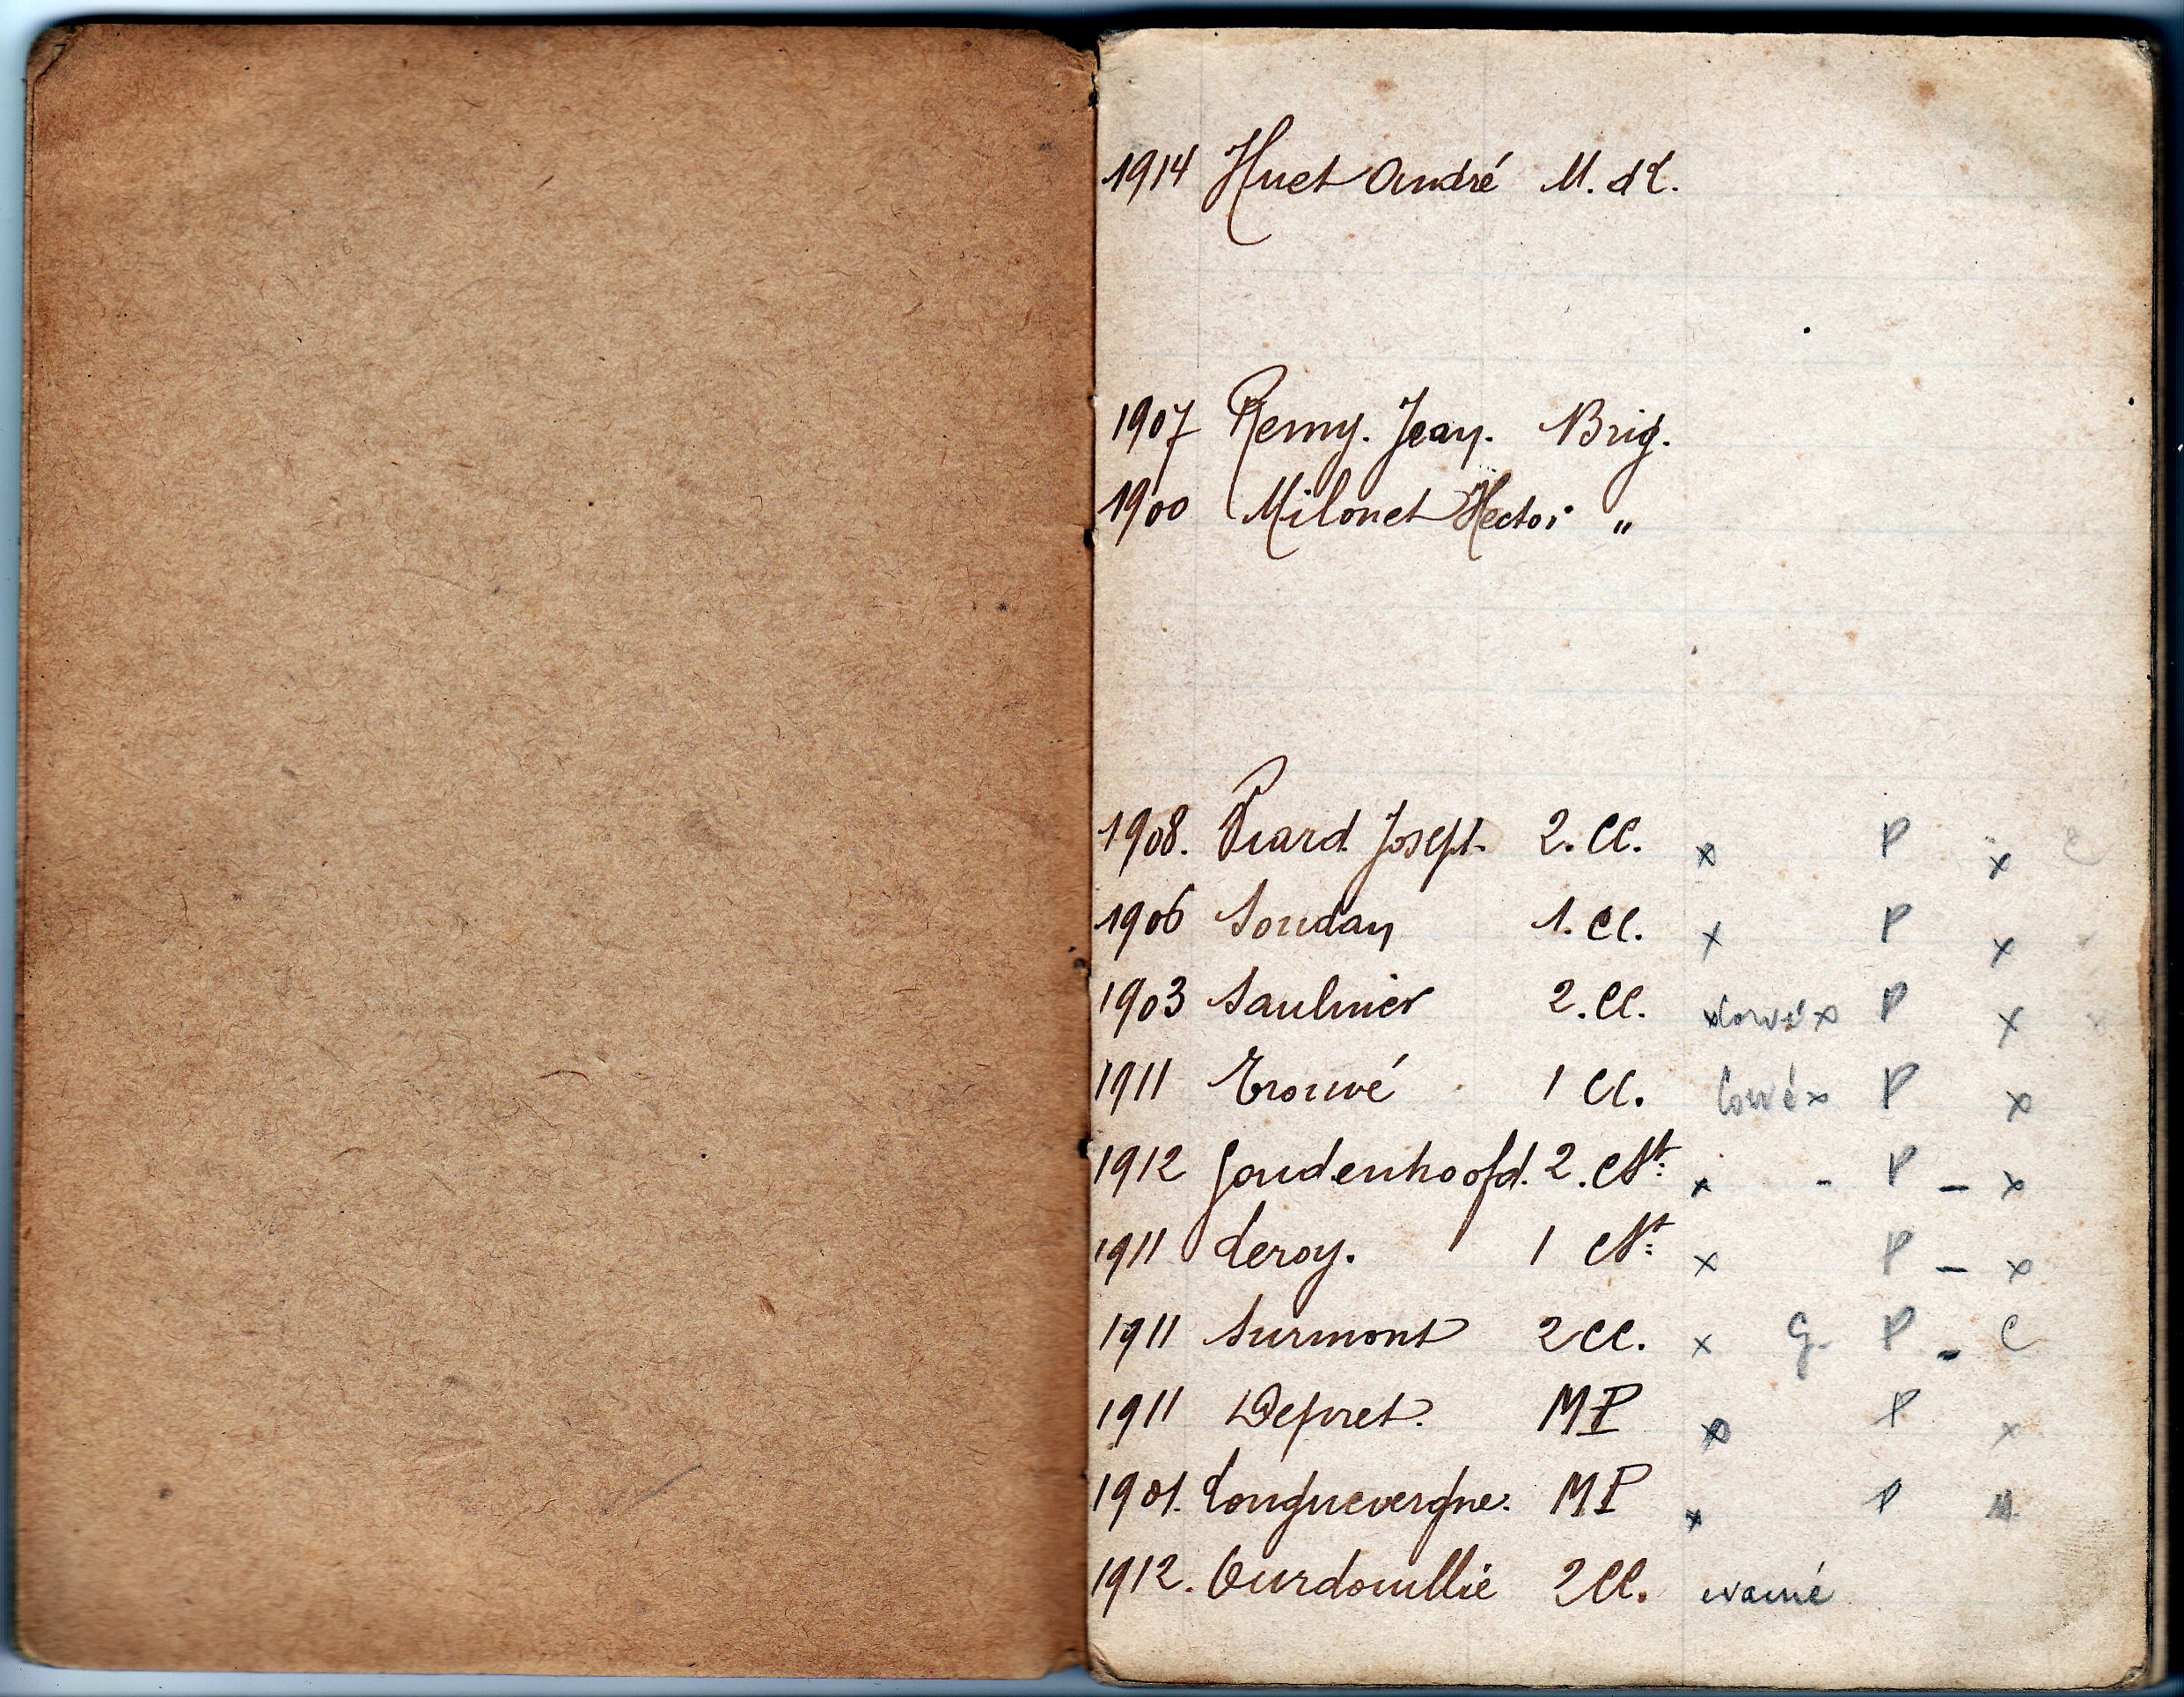 1914 Huet André M. d L.
1907 Remy. Jean. Brig.
1900 Milonet Hector "
1908. Viard Joseph 2. Cl. x P x C
1906 Soudan 1. Cl. x P x
1903 Saulnier 2. Cl. x corvé x P x x
1911 Trouvé 1 Cl. Corvé x P x
1912 Goudenhoofd. 2. Ct x - P - x
1911 Leroy. 1 Ct x P - x
1911 Surmont 2 Cl. x G. P - C
1911 Depret. MP x P x
1901. Longuevergne. MP x P M.
1912. Ourdouillié 2 Cl. evacué